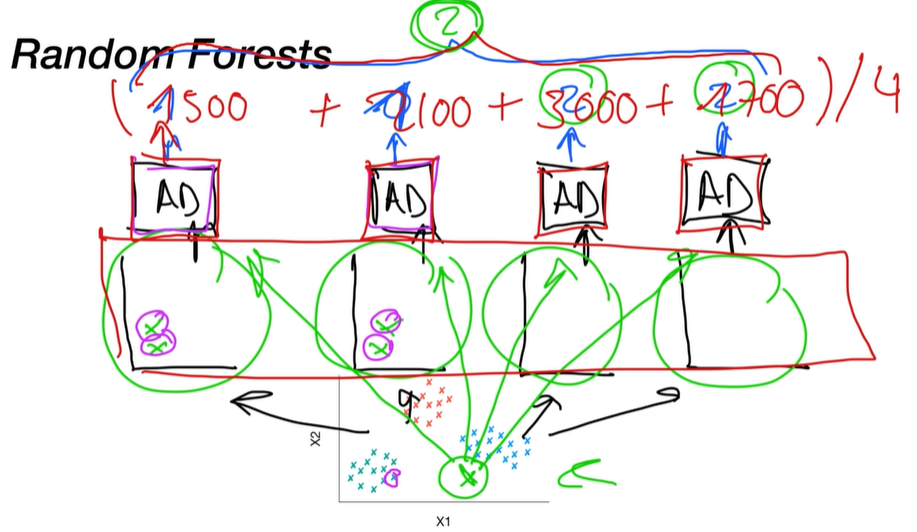 2
Random Forests
( 1500 + 2100 + 3000 + 2700 ) / 4
AD AD AD AD
X2
X1